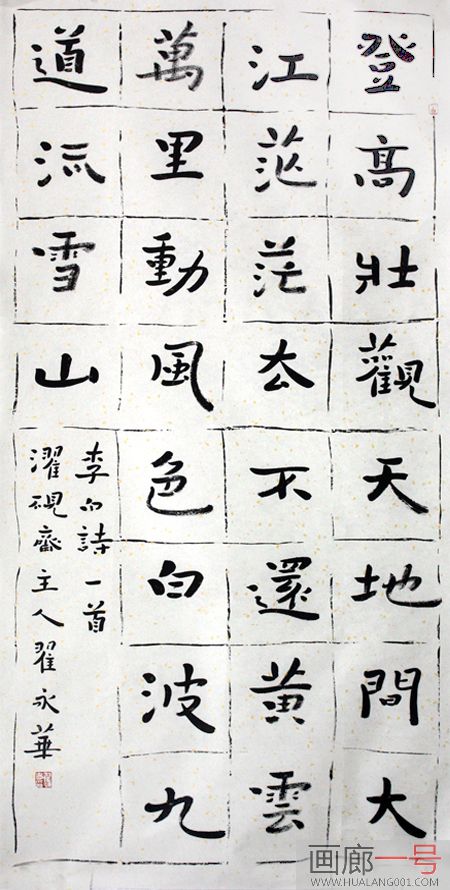 登高壯觀天地間大
江茫茫去不還黃雲
萬里動風色白波九
道流雪山
李白詩一首
濯硯齋主人翟永華
画廊一号
WWW.HUALANG001.COM